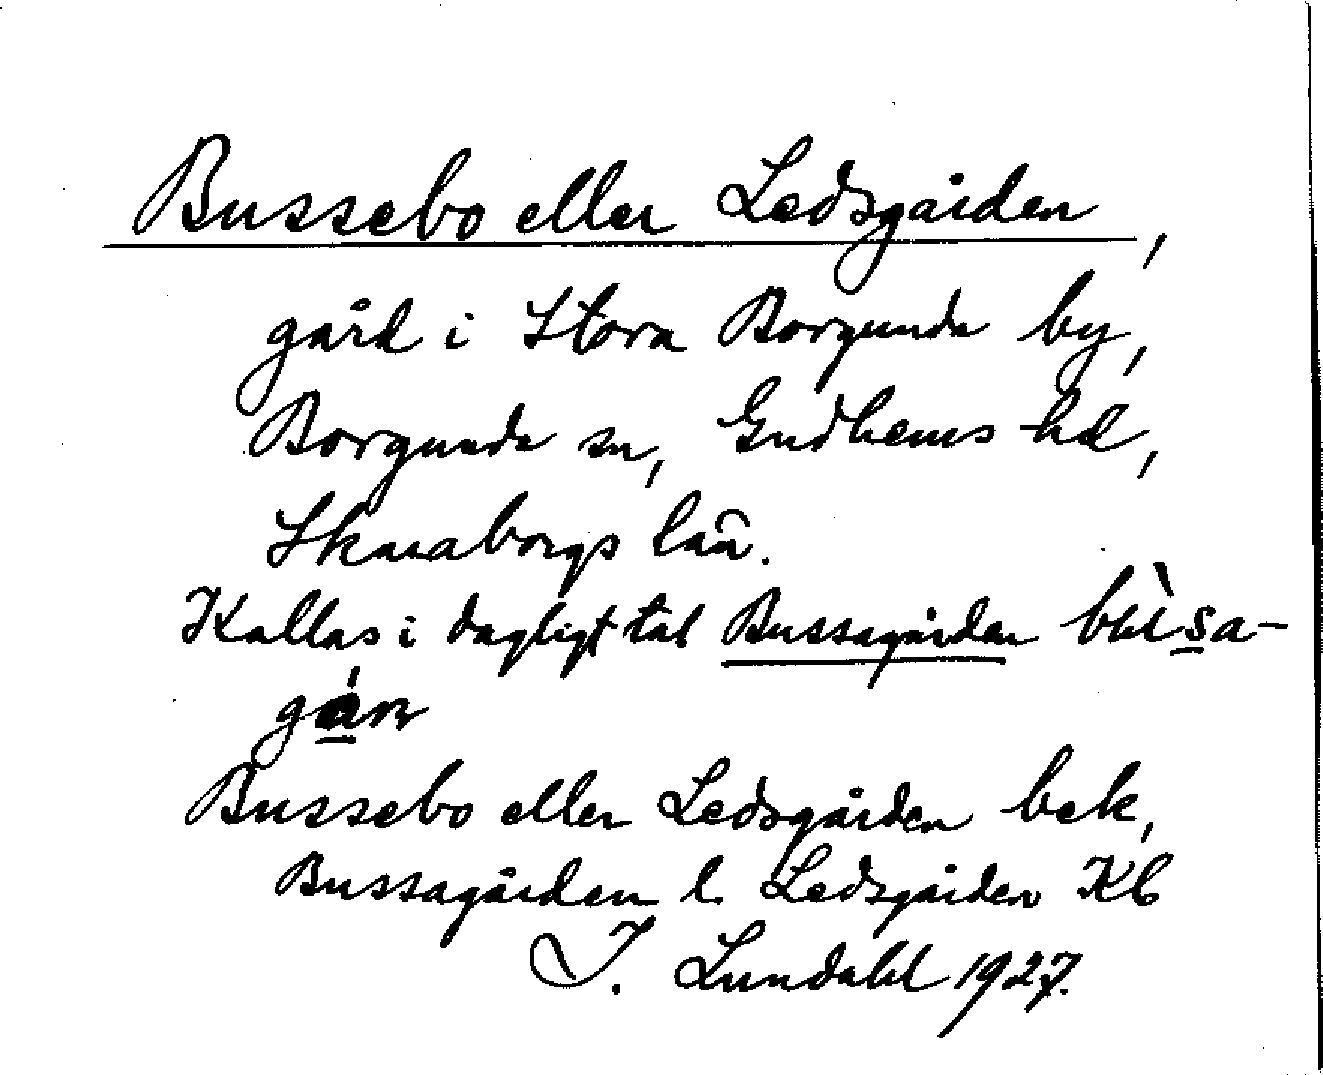 Bussebo eller Ledsgården,
gård i Stora Borgunda by,
Borgunda sn, Gudhems hd,
Skaraborgs län.
Kallas i dagligt tal Bussagården bu̇̀sa-
gán
Bussebo eller Ledsgården bek,
Bussagården l. Ledsgården Kb
I. Lundahl 1927.